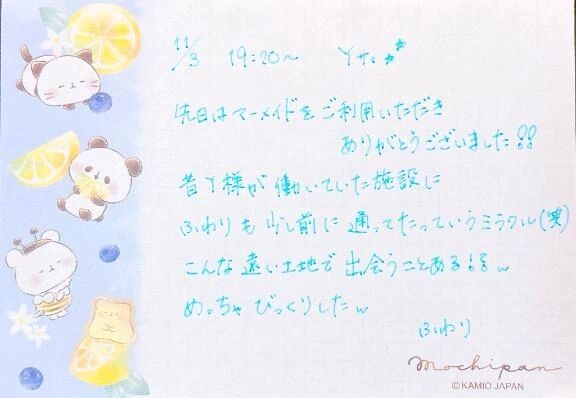 11/3 19:20～ Yサン
先日はマーメイドをご利用いただき
ありがとうございました!!
昔Y様が働いていた施設に
ふわりも少し前に通ってたっていうミラクル(笑)
こんな遠い土地で出会うことある!?w
めっちゃびっくりしたw
ふわり
mochipan
©KAMIO JAPAN